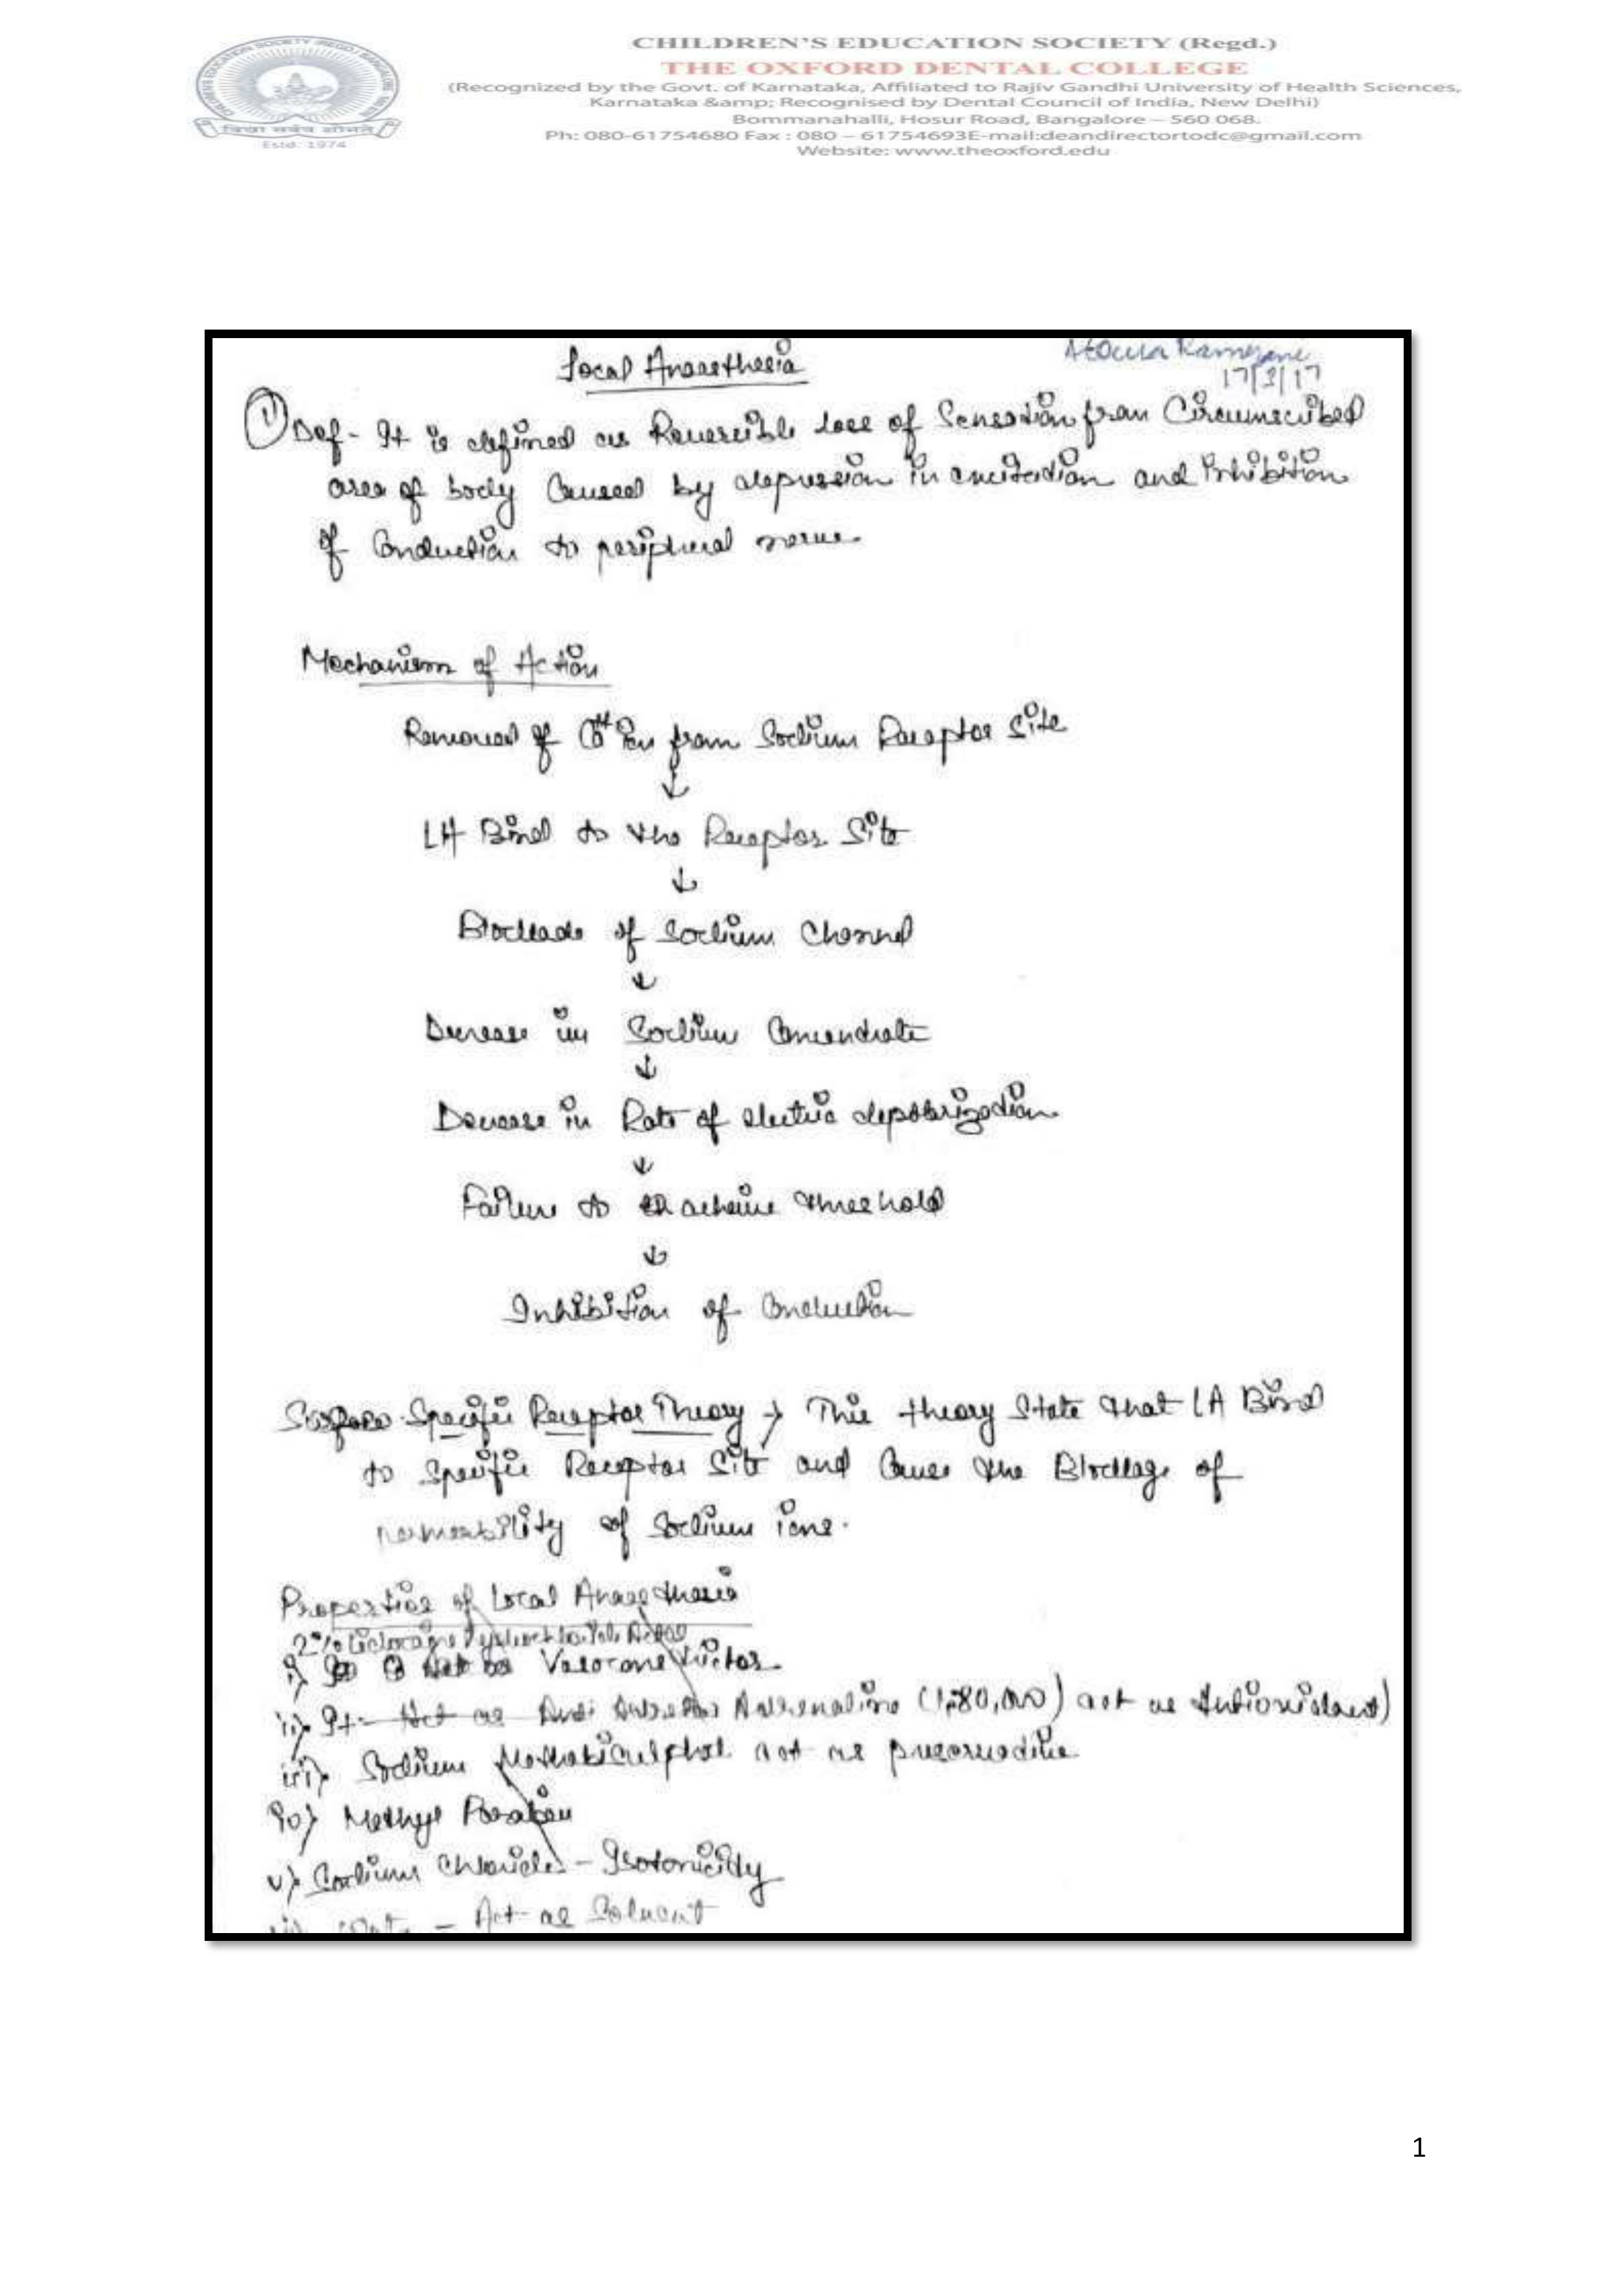 CHILDREN'S EDUCATION SOCIETY (Regd.)
THE OXFORD DENTAL COLLEGE
(Recognized by the Govt. of Karnataka, Affiliated to Rajiv Gandhi University of Health Sciences,
Karnataka &amp; Recognised by Dental Council of India, New Delhi)
Bommanahalli, Hosur Road, Bangalore – 560 068.
Ph: 080-61754680 Fax : 080 – 61754693E-mail:deandirectortodc@gmail.com
Website: www.theoxford.edu
Estd. 1974
Local Anaesthesia
17/3/17
1) Def - It is defined as Reversible loss of Sensation from Circumscribed
area of body Caused by depression in excitation and Inhibition
of Conduction to peripheral nerve
Mechanism of Action
Removal of Ca++ ion from Sodium Receptor Site
↓
LA Bind to the Receptor Site
↓
Blockade of Sodium Channel
↓
Decrease in Sodium
↓
Decrease in Rate of electric depolarization
↓
Failure to achieve threshold
↓
Inhibition of Conduction
Specific Receptor Theory → This theory State that LA Bind
to Specific Receptor Site and Cause the Blockage of
permeability of Sodium ions.
Properties of Local Anaesthesia
2%
i) Vasoconstrictor
ii) It Act as Adrenaline (1:80,000) act as Antioxidant)
iii) Sodium act as preservative
iv) Methyl Paraben
v) Sodium Chloride - Isotonicity
- Act as Solvent
1